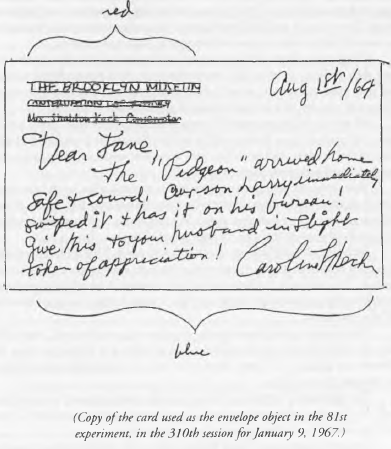 red
THE BROOKLYN MUSEUM
CONSERVATION LABORATORY
Mrs. Sheldon Keck, Conservator
Aug 1st/64
Dear Jane,
The "Pidgeon" arrived home
safe & sound. Our son Harry immediately
swiped it & has it on his bureau!
Give this to your husband in slight
token of appreciation!
Caroline Keck
blue
(Copy of the card used as the envelope object in the 81st
experiment, in the 310th session for January 9, 1967.)